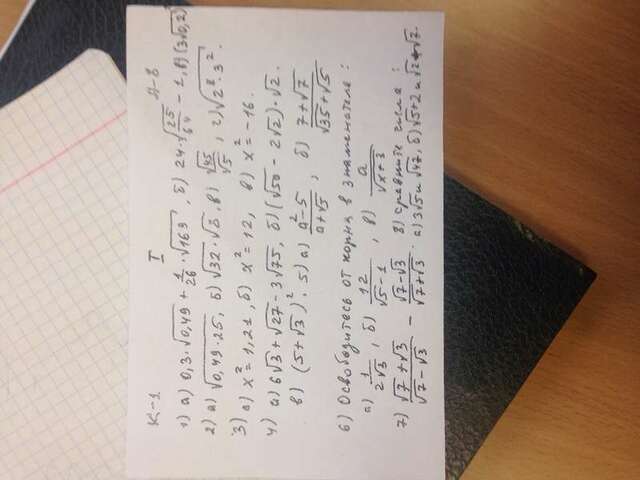 К-1 I А-8
1) а) 0,3·√0,49 + 1/26·√169, б) 24·√25/64 - 1, в) (3√0,2)
2) а) √0,49·25, б) √32·√8, в) √45/√5, г) √2⁸·3².
3) а) x² = 1,21, б) x² = 12, в) x² = -16.
4) а) 6√3 + √27 - 3√75, б) (√50 - 2√2)·√2.
в) (5+√3)². 5) а) a²-5/a+√5, б) 7+√7/√35+√5
6) Освободитесь от корня в знаменателе:
а) 1/2√3, б) 12/√5-1, в) a/√x+3
7) √7+√3/√7-√3 - √7-√3/√7+√3. 8) сравните числа:
а) 3√5 и √47, б) √5+2 и √2+√7.